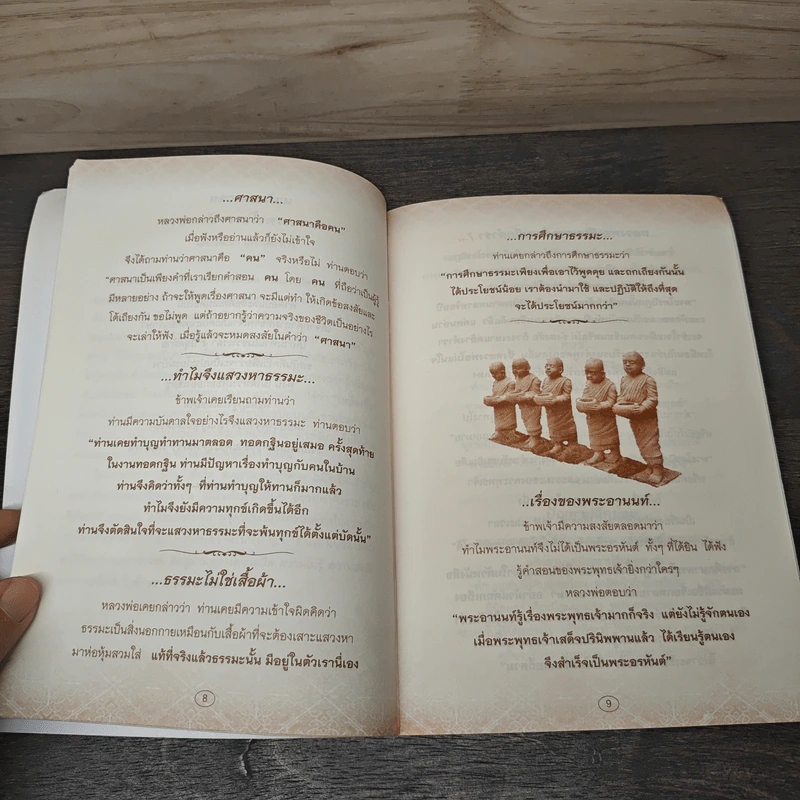 ...ศาสนา...
หลวงพ่อกล่าวถึงศาสนาว่า "ศาสนาคือคน"
เมื่อฟังหรืออ่านแล้วก็ยังไม่เข้าใจ
จึงได้ถามท่านว่าศาสนาคือ "คน" จริงหรือไม่ ท่านตอบว่า
"ศาสนาเป็นเพียงคำที่เราเรียกคำสอน คน โดย คน ที่ถือว่าเป็นผู้รู้
มีหลายอย่าง ถ้าจะให้พูดเรื่องศาสนา จะมีแต่ทำ ให้เกิดข้อสงสัยและ
โต้เถียงกัน ขอไม่พูด แต่ถ้าอยากรู้ว่าความจริงของชีวิตเป็นอย่างไร
จะเล่าให้ฟัง เมื่อรู้แล้วจะหมดสงสัยในคำว่า "ศาสนา"
...ทำไมจึงแสวงหาธรรมะ...
ข้าพเจ้าเคยเรียนถามท่านว่า
ท่านมีความบันดาลใจอย่างไรจึงแสวงหาธรรมะ ท่านตอบว่า
"ท่านเคยทำบุญทำทานมาตลอด ทอดกฐินอยู่เสมอ ครั้งสุดท้าย
ในงานทอดกฐิน ท่านมีปัญหาเรื่องทำบุญกับคนในบ้าน
ท่านจึงคิดว่าทั้งๆ ที่ท่านทำบุญให้ทานก็มากแล้ว
ทำไมจึงยังมีความทุกข์เกิดขึ้นได้อีก
ท่านจึงตัดสินใจที่จะแสวงหาธรรมะที่จะพ้นทุกข์ได้ตั้งแต่บัดนั้น"
...ธรรมะไม่ใช่เสื้อผ้า...
หลวงพ่อเคยกล่าวว่า ท่านเคยมีความเข้าใจผิดคิดว่า
ธรรมะเป็นสิ่งนอกกายเหมือนกับเสื้อผ้าที่จะต้องเสาะแสวงหา
มาห่อหุ้มสวมใส่ แท้ที่จริงแล้วธรรมะนั้น มีอยู่ในตัวเรานี่เอง
8
...การศึกษาธรรมะ...
ท่านเคยกล่าวถึงการศึกษาธรรมะว่า
"การศึกษาธรรมะเพียงเพื่อเอาไว้พูดคุย และถกเถียงกันนั้น
ได้ประโยชน์น้อย เราต้องนำมาใช้ และปฏิบัติให้ถึงที่สุด
จะได้ประโยชน์มากกว่า"
..เรื่องของพระอานนท์...
ข้าพเจ้ามีความสงสัยตลอดมาว่า
ทำไมพระอานนท์จึงไม่ได้เป็นพระอรหันต์ ทั้งๆ ที่ได้ยิน ได้ฟัง
รู้คำสอนของพระพุทธเจ้ายิ่งกว่าใครๆ
หลวงพ่อตอบว่า
"พระอานนท์รู้เรื่องพระพุทธเจ้ามากก็จริง แต่ยังไม่รู้จักตนเอง
เมื่อพระพุทธเจ้าเสด็จปรินิพพานแล้ว ได้เรียนรู้ตนเอง
จึงสำเร็จเป็นพระอรหันต์"
9